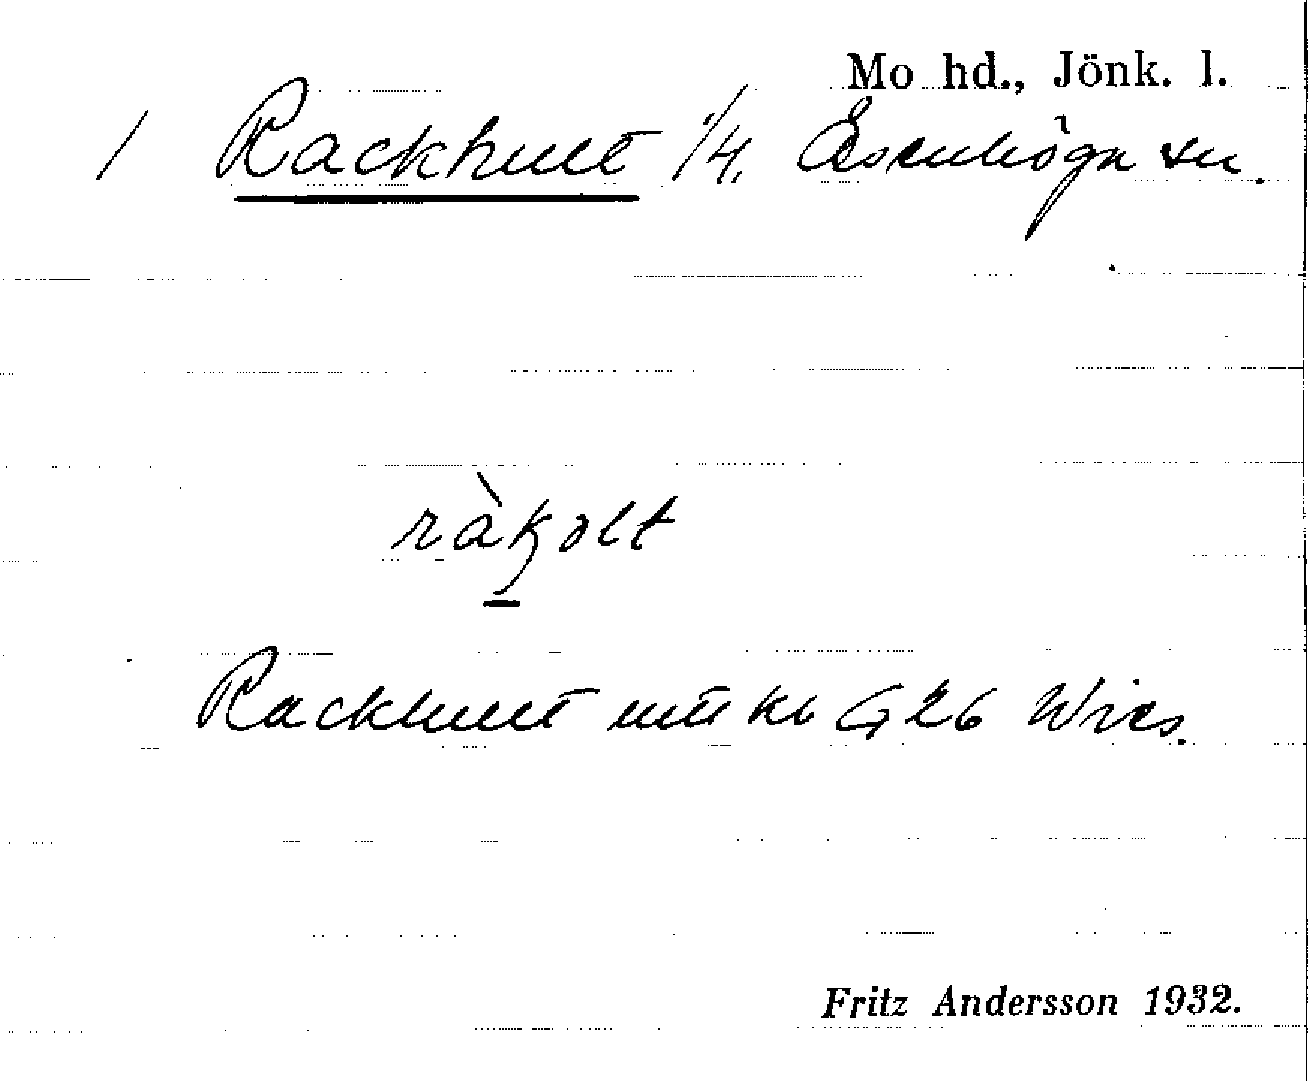 Mo hd., Jönk. l.
/ Rackhult 1/4. Åsenhöga sn.
ràkolt
Rackhult G 26 Wies.
Fritz Andersson 1932.